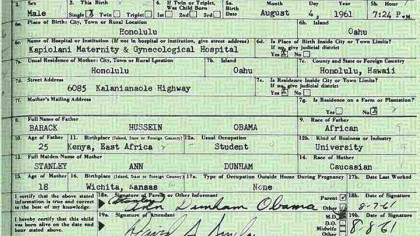 Sex 3. This Birth 4. If Twin or Triplet, Was Child Born Month Day Year Hour
Male Single Twin Triplet 1st 2nd 3rd August 4, 1961 7:24 P.M.
6a. Place of Birth: City, Town or Rural Location 6b. Island
Honolulu Oahu
Name of Hospital or Institution (If not in hospital or institution, give street address) 6d. Is Place of Birth Inside City or Town Limits?
If no, give judicial district
Kapiolani Maternity & Gynecological Hospital Yes No
Usual Residence of Mother: City, Town or Rural Location 7b. Island 7c. County and State or Foreign Country
Honolulu Oahu Honolulu, Hawaii
7d. Street Address 7e. Is Residence Inside City or Town Limits?
If no, give judicial district
6085 Kalanianaole Highway Yes No
7f. Mother's Mailing Address 7g. Is Residence on a Farm or Plantation?
Yes No
8. Full Name of Father 9. Race of Father
BARACK HUSSEIN OBAMA African
10. Age of Father 11. Birthplace (Island, State or Foreign Country) 12a. Usual Occupation 12b. Kind of Business or Industry
25 Kenya, East Africa Student University
13. Full Maiden Name of Mother 14. Race of Mother
STANLEY ANN DUNHAM Caucasian
15. Age of Mother 16. Birthplace (Island, State or Foreign Country) 17a. Type of Occupation Outside Home During Pregnancy 17b. Date Last Worked
18 Wichita, Kansas None
I certify that the above stated information is true and correct to the best of my knowledge. 18a. Signature of Parent or Other Informant Parent Other 18b. Date of Signature
(Stanley) Ann Dunham Obama 8-7-61
I hereby certify that this child was born alive on the date and hour stated above. 19a. Signature of Attendant M.D. D.O. Midwife Other 19b. Date of Signature
8-8-61